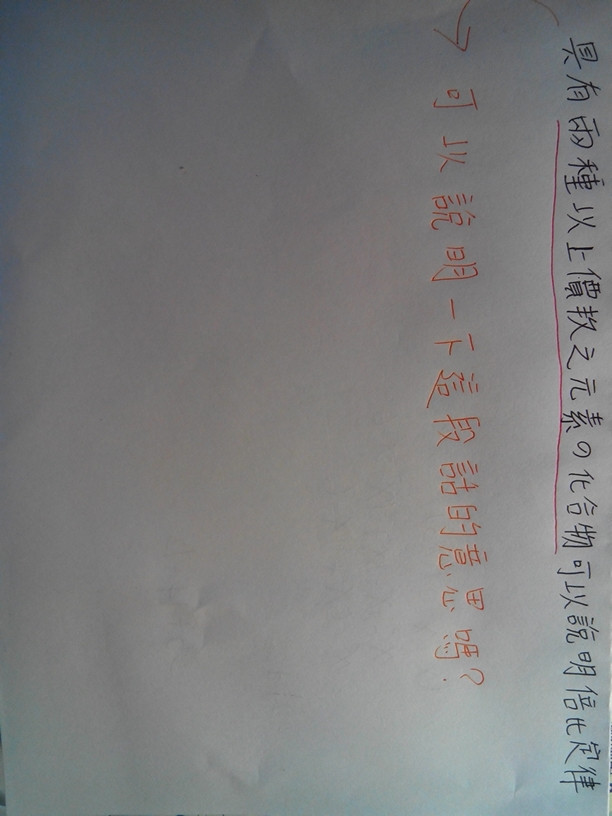 具有兩種以上價數之元素の化合物可以說明倍比定律
可以說明一下這段話的意思嗎?